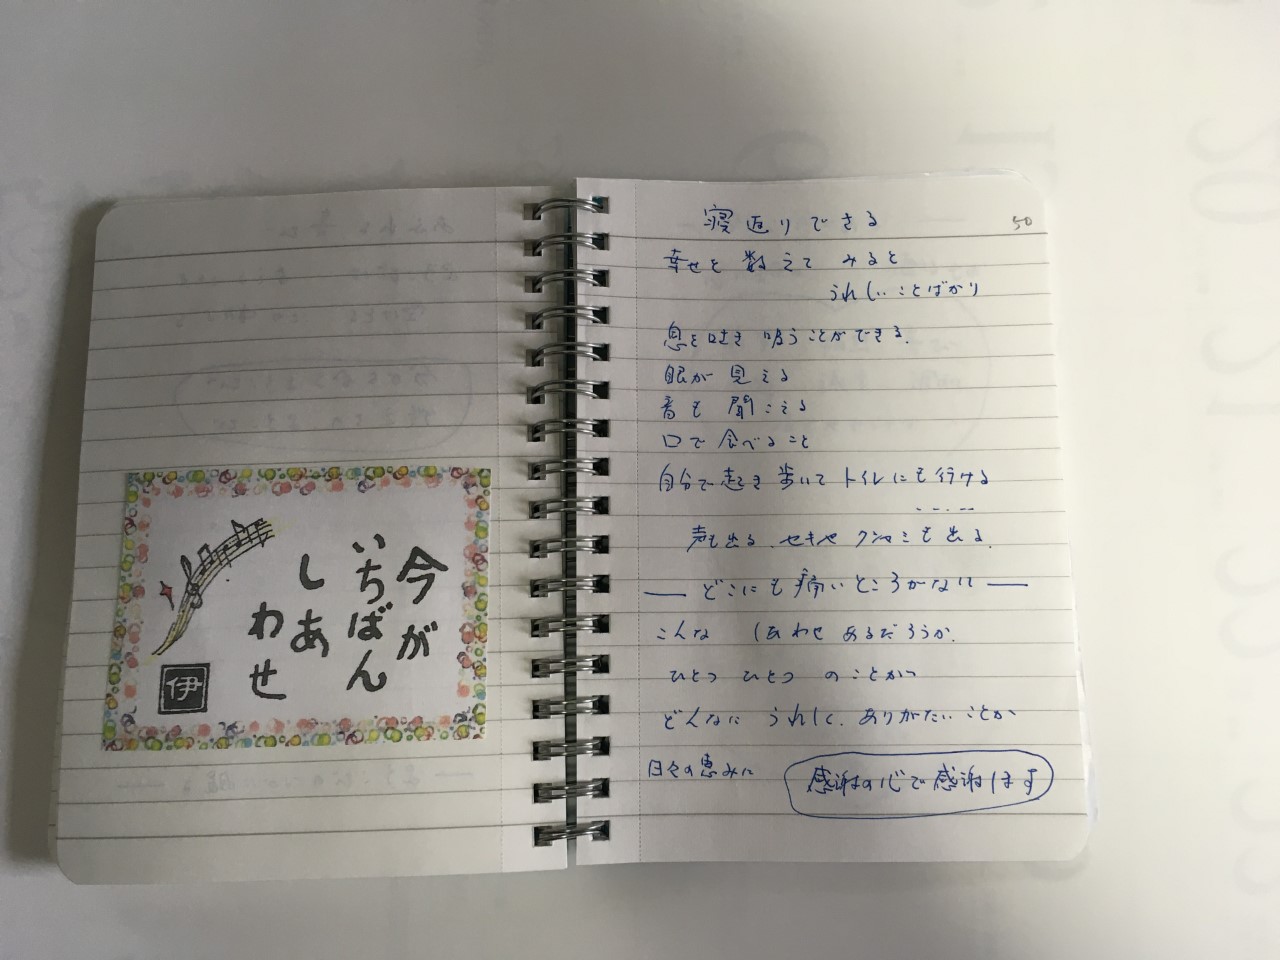 今が
いちばん
しあ
わせ
伊
50
寝返りできる
幸せを数えてみると
うれしいことばかり
息を吐き吸うことができる.
眼が見える
音も聞こえる
口で食べること
自分で起き歩いてトイレにも行ける
‥‥‥
声も出る、セキやクシャミも出る.
— どこにも痛いところがない —
こんな しあわせ あるだろうか.
ひとつ ひとつ のことが
どんなに うれしく、ありがたいことか
日々の恵みに
感謝の心で感謝します